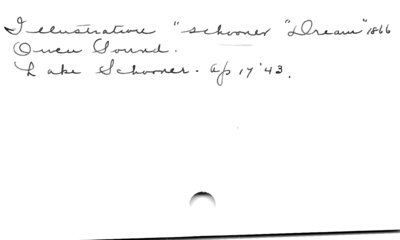 Illustration "schooner "Dream" 1866
Owen Sound.
Lake Schooner. Ap 17 '43.